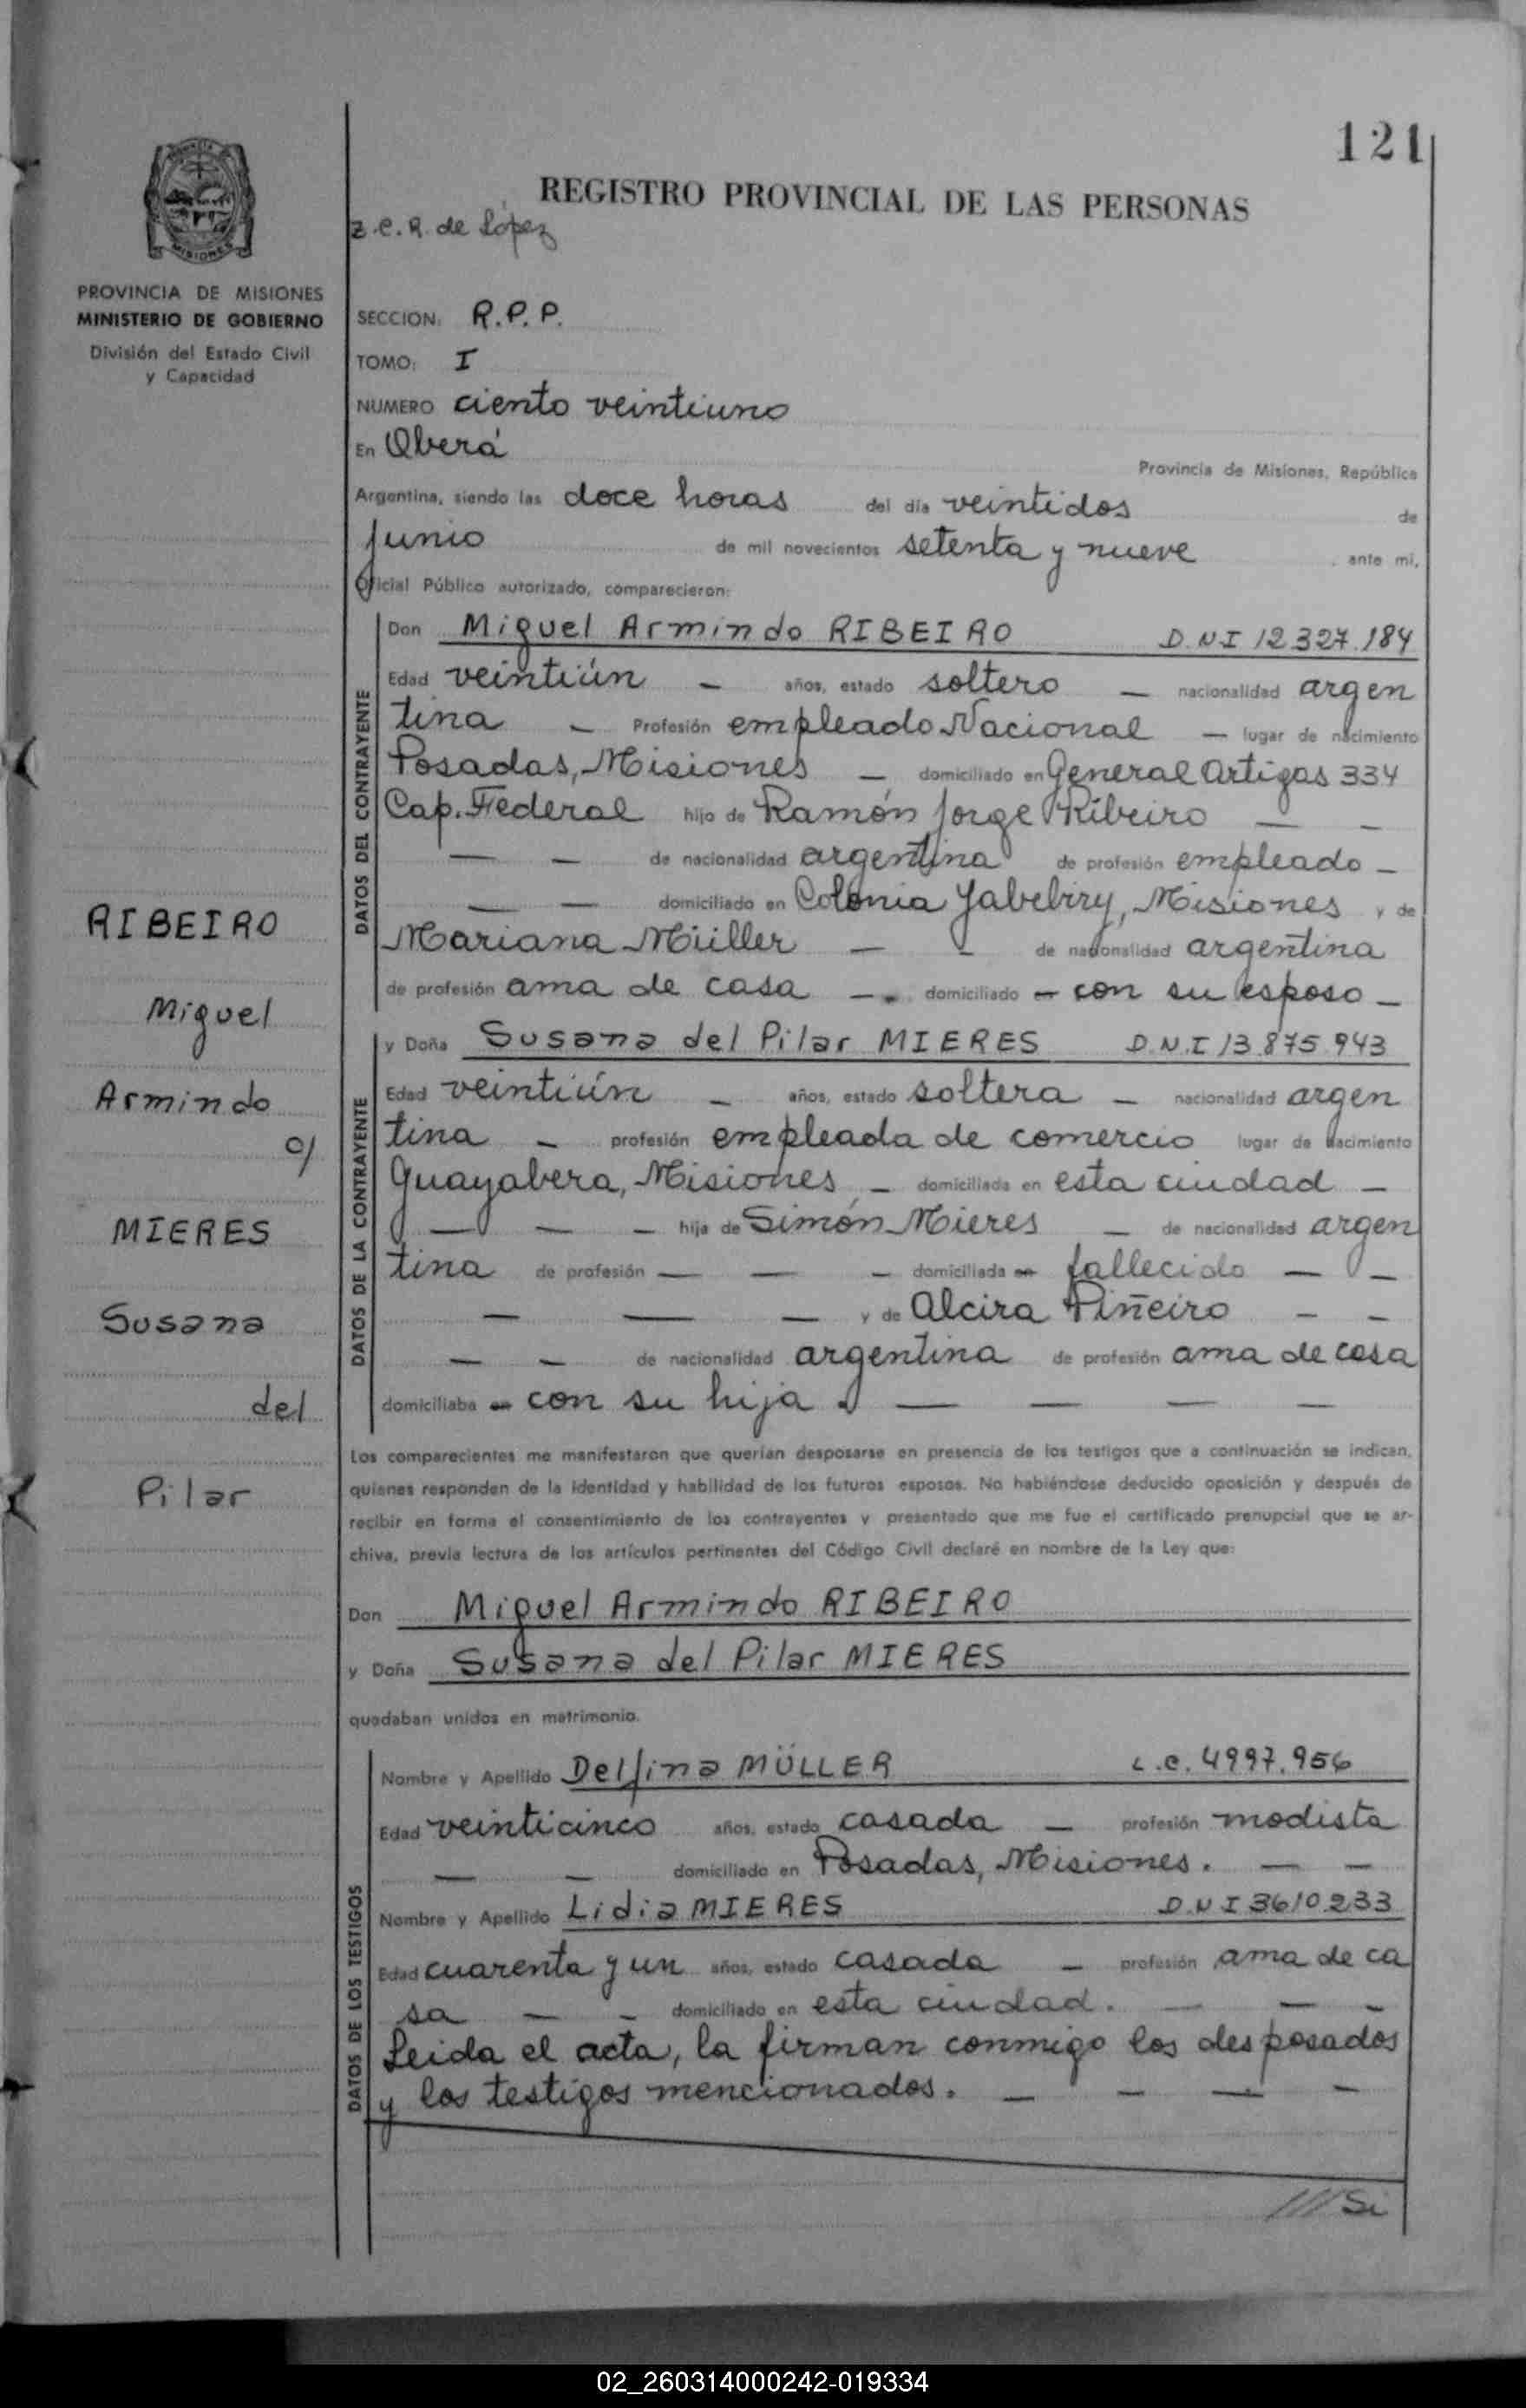 121
REGISTRO PROVINCIAL DE LAS PERSONAS
Z.C.R. de López
MISIONES
PROVINCIA DE MISIONES
MINISTERIO DE GOBIERNO
División del Estado Civil
y Capacidad
SECCION: R.P.P.
TOMO: I
NUMERO ciento veintiuno
En Oberá
Provincia de Misiones, República
Argentina, siendo las doce horas del día veintidos de
junio de mil novecientos setenta y nueve , ante mi,
Oficial Público autorizado, comparecieron:
DATOS DEL CONTRAYENTE
Don Miguel Armindo RIBEIRO D.N.I 12.327.184
Edad veintiún — años, estado soltero — nacionalidad argen
tina — Profesión empleado Nacional — lugar de nacimiento
Posadas, Misiones — domiciliado en General Artigas 334
Cap. Federal hijo de Ramón Jorge Ribeiro — —
— — de nacionalidad argentina de profesión empleado —
— — domiciliado en Colonia Yabebiry, Misiones y de
Mariana Müller — — de nacionalidad argentina
de profesión ama de casa —. domiciliado — con su esposo —
DATOS DE LA CONTRAYENTE
y Doña Susana del Pilar MIERES D.N.I 13.875.943
Edad veintiún — años, estado soltera — nacionalidad argen
tina — profesión empleada de comercio lugar de nacimiento
Guayabera, Misiones — domiciliada en esta ciudad —
— — — hija de Simón Mieres — de nacionalidad argen
tina de profesión — — — domiciliada en fallecido — —
— — — y de Alcira Piñeiro — —
— — de nacionalidad argentina de profesión ama de casa
domiciliaba en con su hija. — — — —
Los comparecientes me manifestaron que querían desposarse en presencia de los testigos que a continuación se indican,
quienes responden de la identidad y habilidad de los futuros esposos. No habiéndose deducido oposición y después de
recibir en forma el consentimiento de los contrayentes y presentado que me fue el certificado prenupcial que se ar-
chiva, previa lectura de los artículos pertinentes del Código Civil declaré en nombre de la Ley que:
Don Miguel Armindo RIBEIRO
y Doña Susana del Pilar MIERES
quedaban unidos en matrimonio.
DATOS DE LOS TESTIGOS
Nombre y Apellido Delfina MÜLLER L.C. 4997.956
Edad veinticinco años, estado casada — profesión modista
— — domiciliado en Posadas, Misiones. — —
Nombre y Apellido Lidia MIERES D.N.I 3610.233
Edad cuarenta y un años, estado casada — profesión ama de ca
sa — — domiciliado en esta ciudad. — — —
Leida el acta, la firman conmigo los desposados
y los testigos mencionados. — — — —
///Si
RIBEIRO
Miguel
Armindo
c/
MIERES
Susana
del
Pilar
02_260314000242-019334